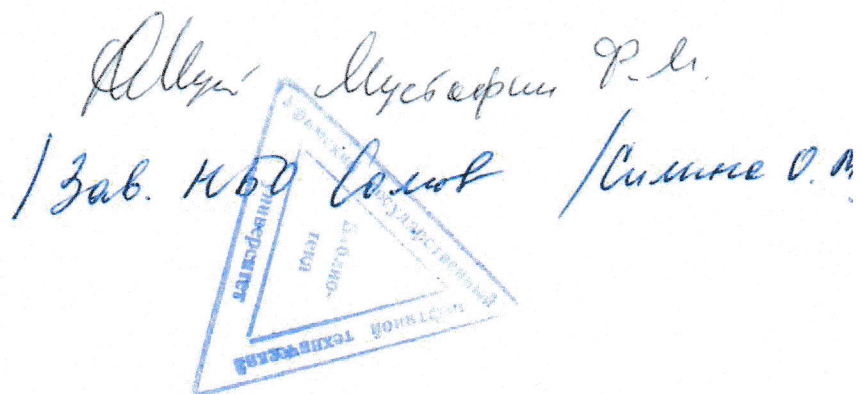 Мустафин Ф.М.
/Зав. НБО /Силина О.
Уфимский государственный
нефтяной технический
университет
Библио-
тека